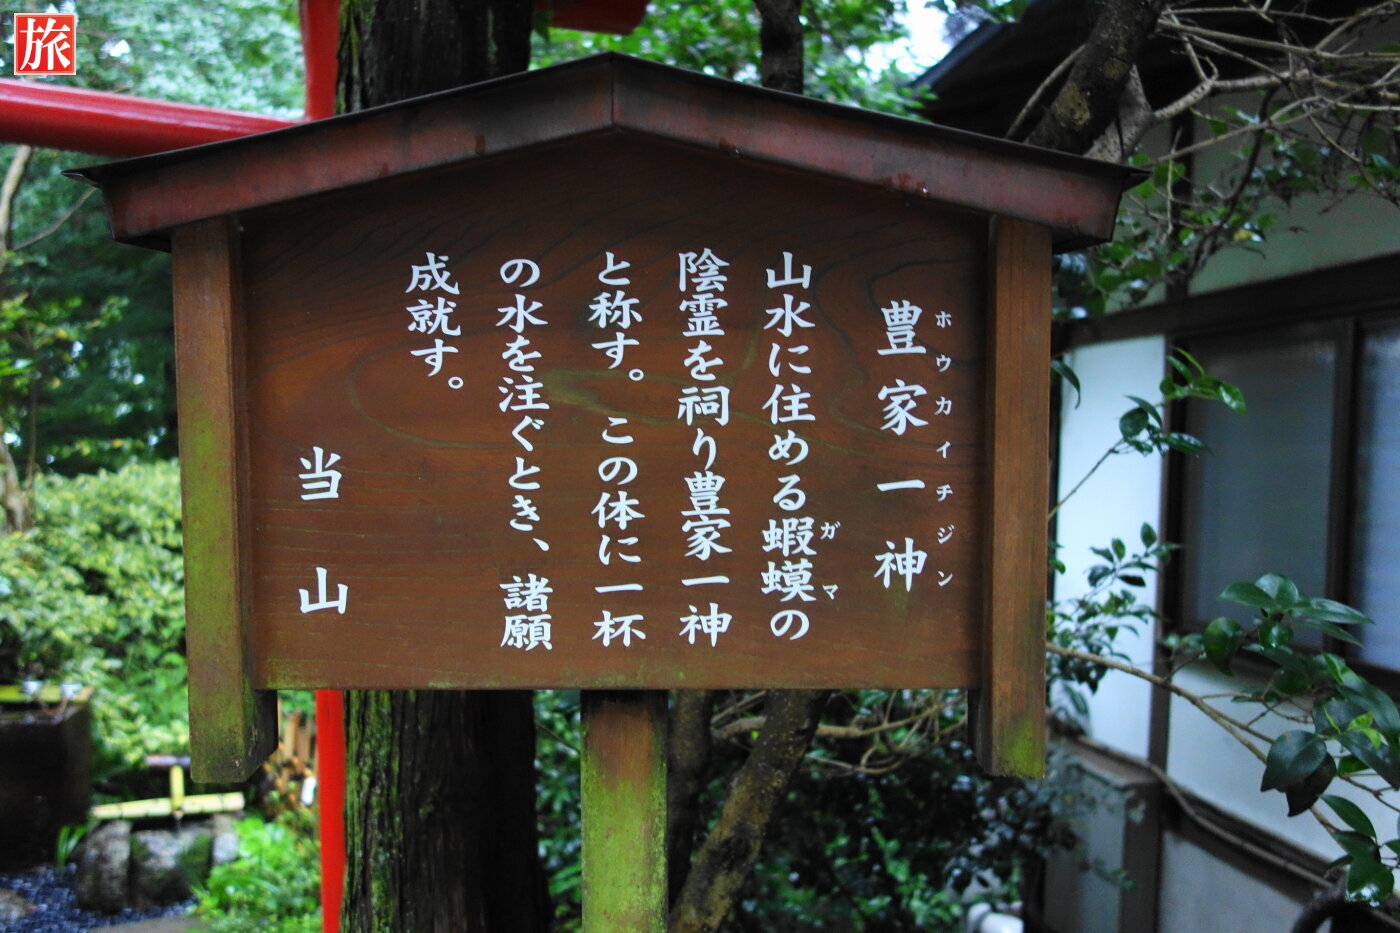 旅
豊家一神
ホウカイチジン
山水に住める蝦蟆の
ガマ
陰霊を祠り豊家一神
と称す。この体に一杯
の水を注ぐとき、諸願
成就す。
当山